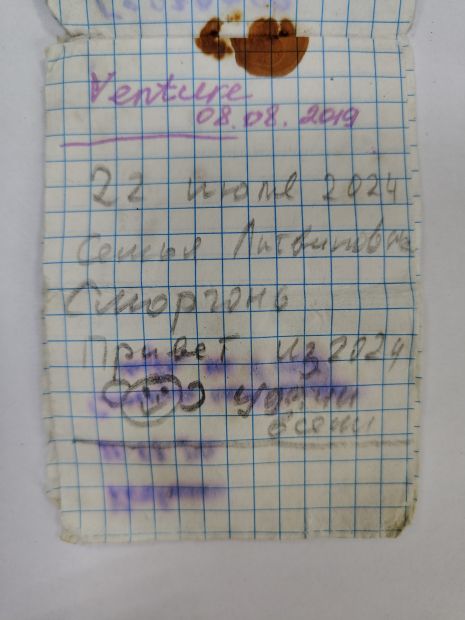 Venture
08.08.2019
22 июля 2024
Семья
Сморгонь
Привет из 2024
удачи
всем